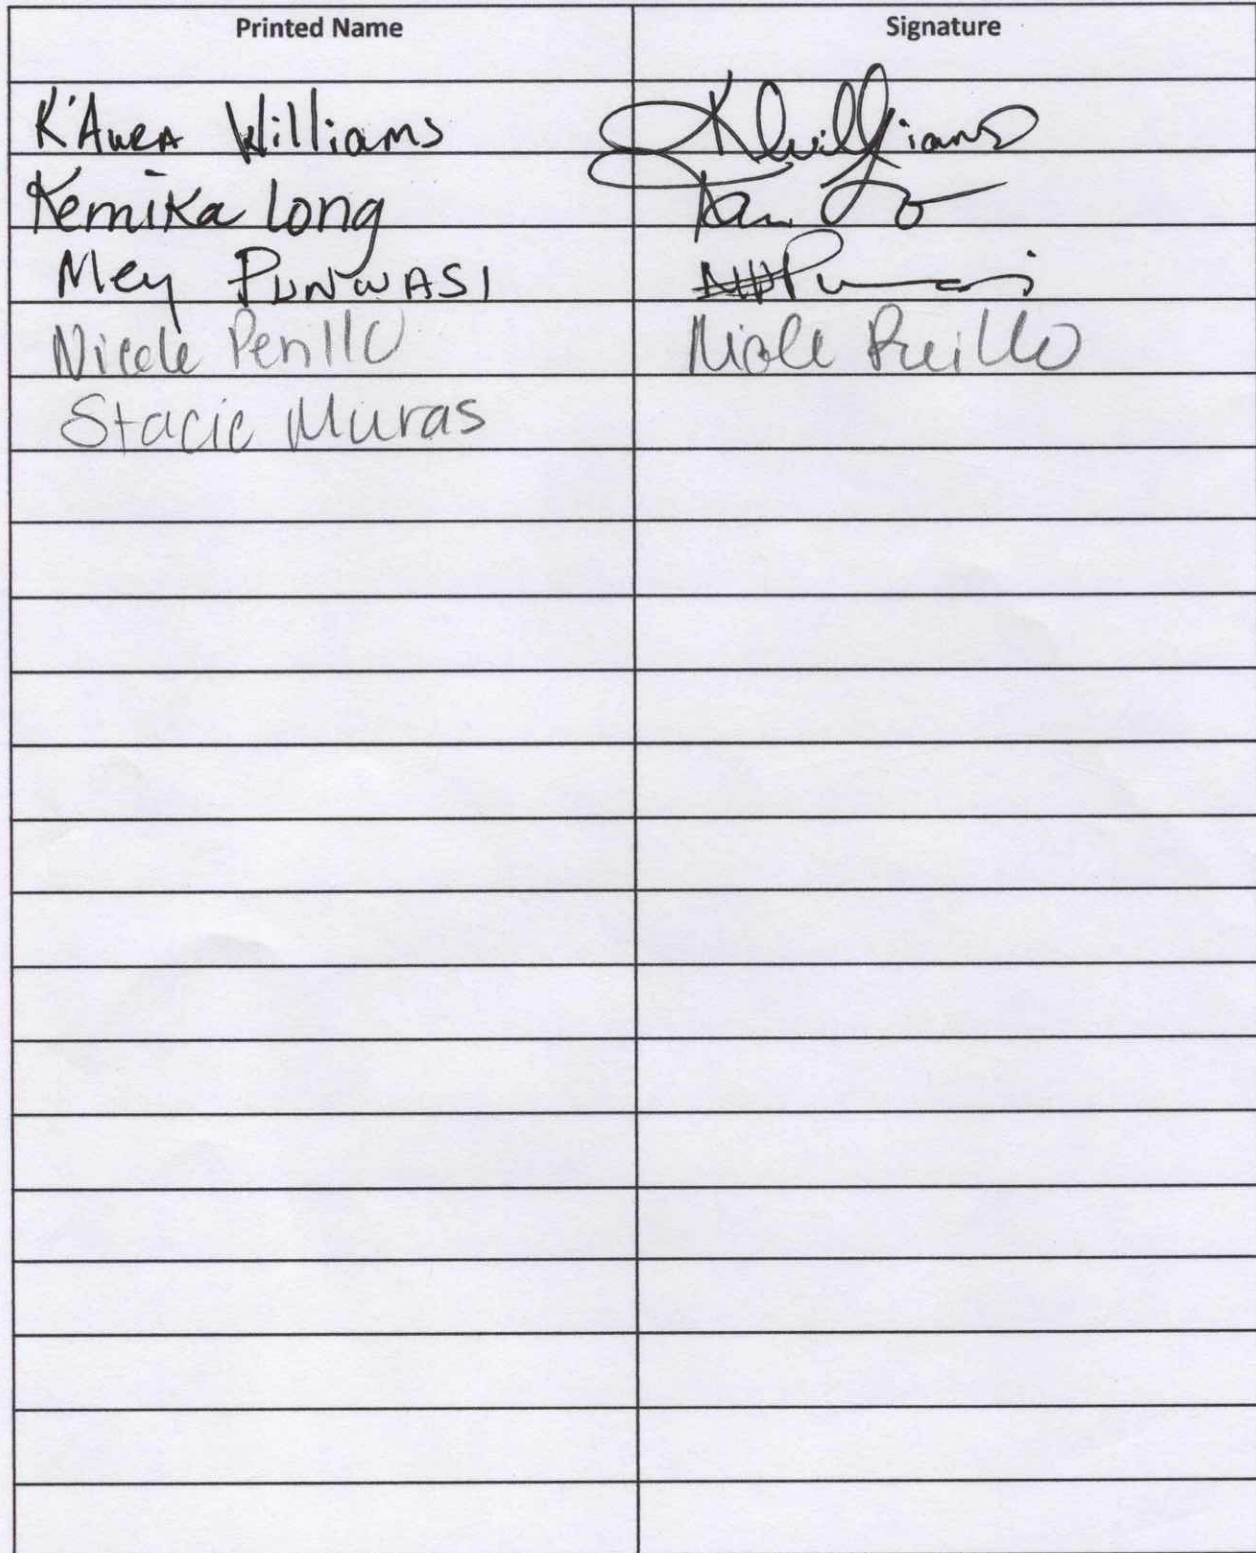 Printed Name Signature
K'Awra Williams KWilliams
Kemika Long
Mey Punwasi
Nicole Perillo Nicole Perillo
Stacie Muras